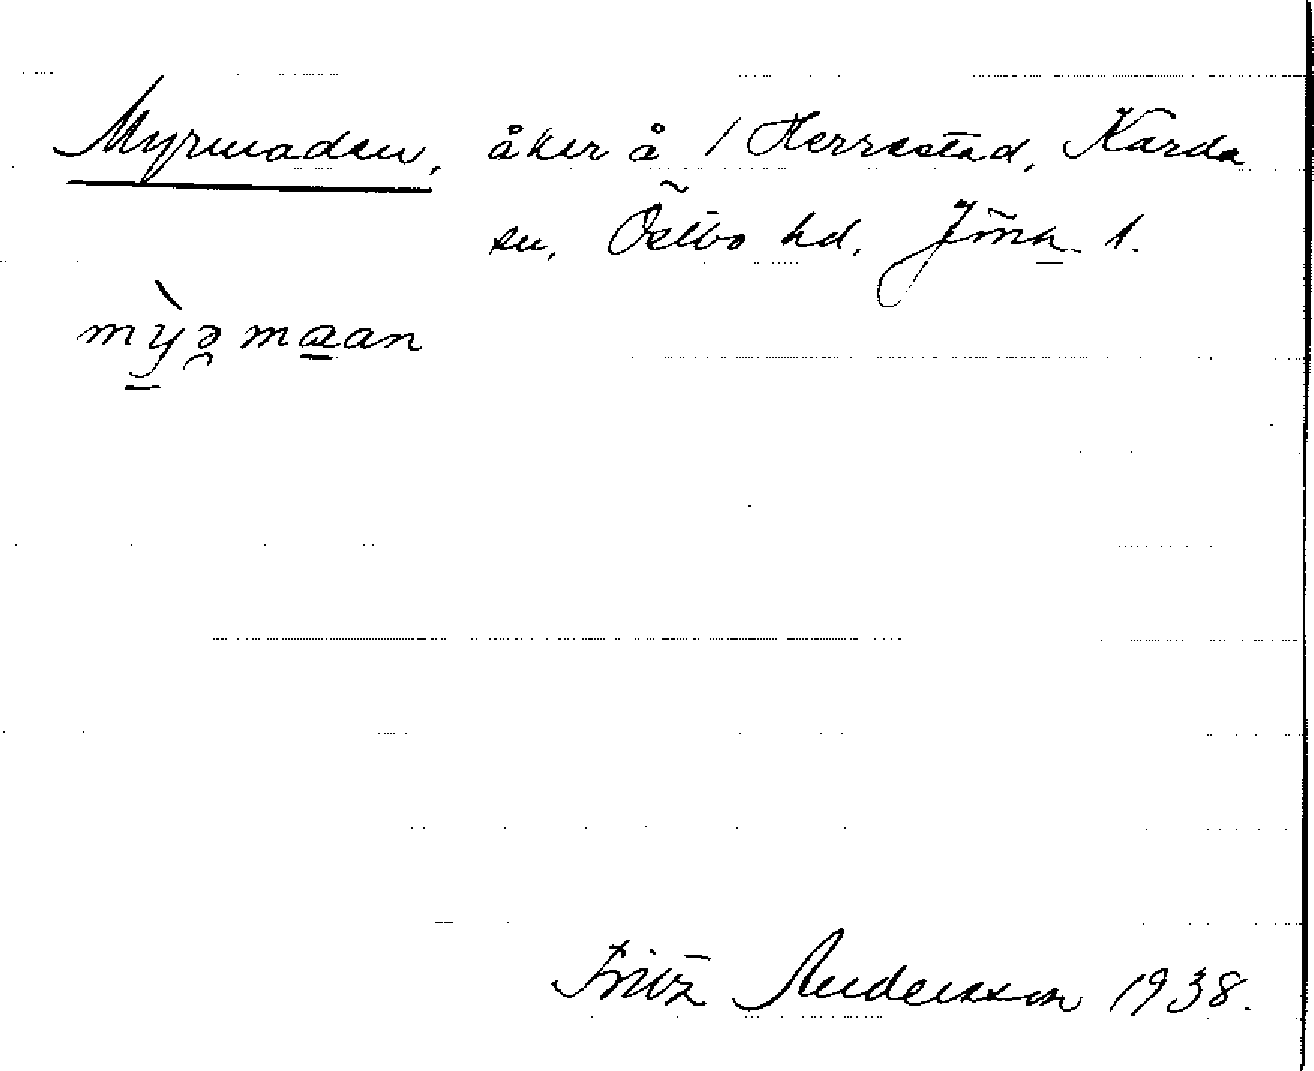 Myrmaden, åker å 1 Herrestad, Kärda
sn, Östbo hd. Jönk. l.
mỳəmaan
Fritz Andersson 1938.